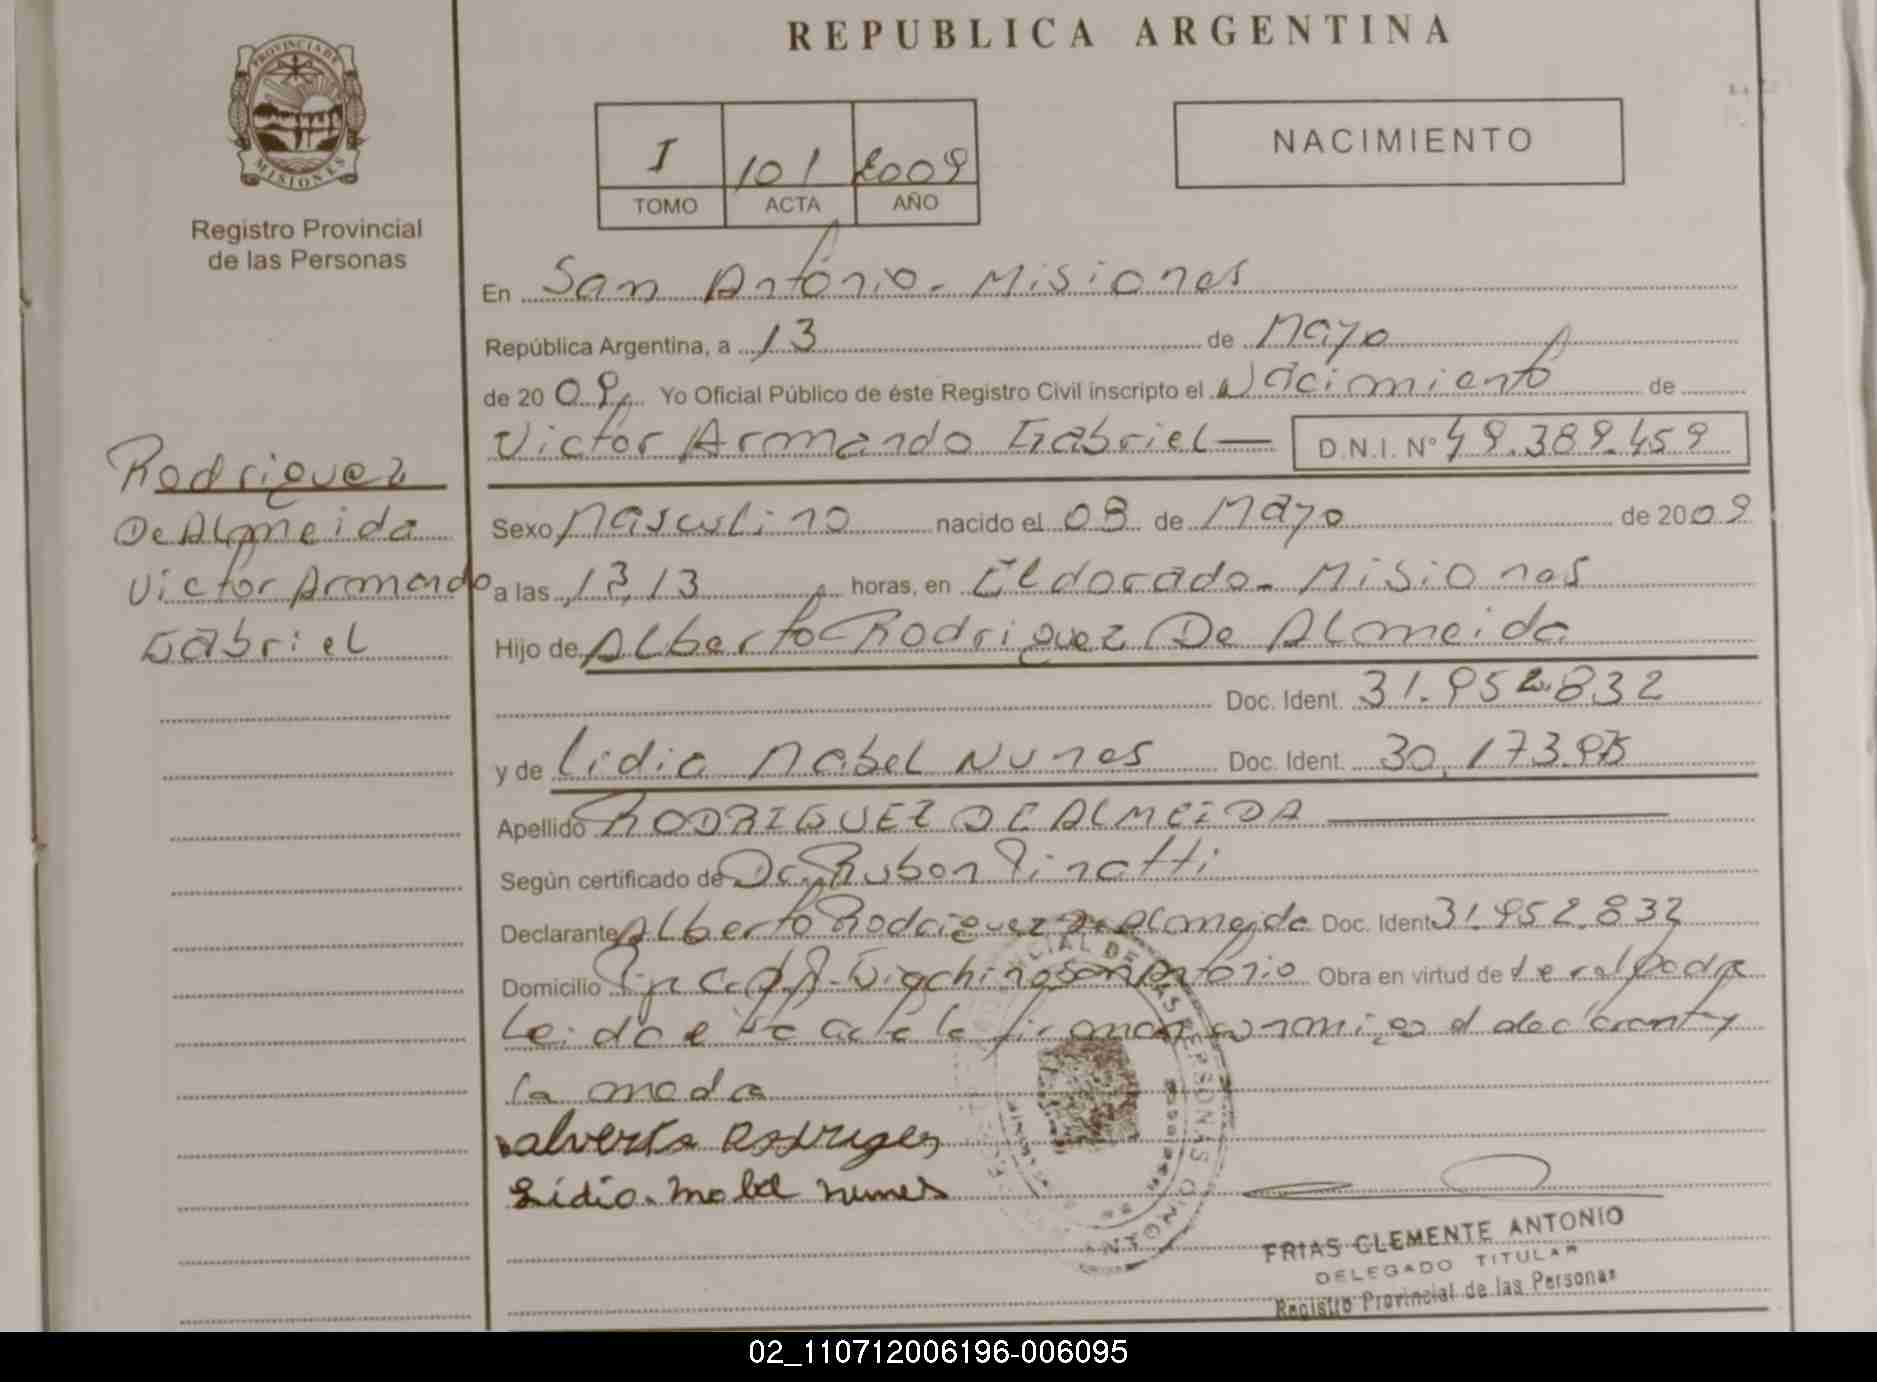 REPUBLICA ARGENTINA
PROVINCIA DE
MISIONES
Registro Provincial
de las Personas
I 101 2009
TOMO ACTA AÑO
NACIMIENTO
En San Antonio - Misiones
República Argentina, a 13 de Mayo
de 2009, Yo Oficial Público de éste Registro Civil inscripto el Nacimiento de
Victor Armando Gabriel D.N.I. Nº 49.389.459
Rodriguez
De Almeida
Victor Armando
Gabriel
Sexo Masculino nacido el 08 de Mayo de 2009
a las 13,13 horas, en Eldorado - Misiones
Hijo de Alberto Rodriguez De Almeida
Doc. Ident. 31.952.832
y de Lidia Mabel Nunes Doc. Ident. 30.173.975
Apellido RODRIGUEZ DE ALMEIDA
Según certificado de Dr. Ruben
Declarante Alberto Rodriguez De Almeida Doc. Ident 31.952.832
Domicilio San Antonio Obra en virtud de
Leido el acta la firman conmigo el declarante y
la madre
alverto Rodriges
Lidia Mabel nunes
FRIAS CLEMENTE ANTONIO
DELEGADO TITULAR
Registro Provincial de las Personas
02_110712006196-006095